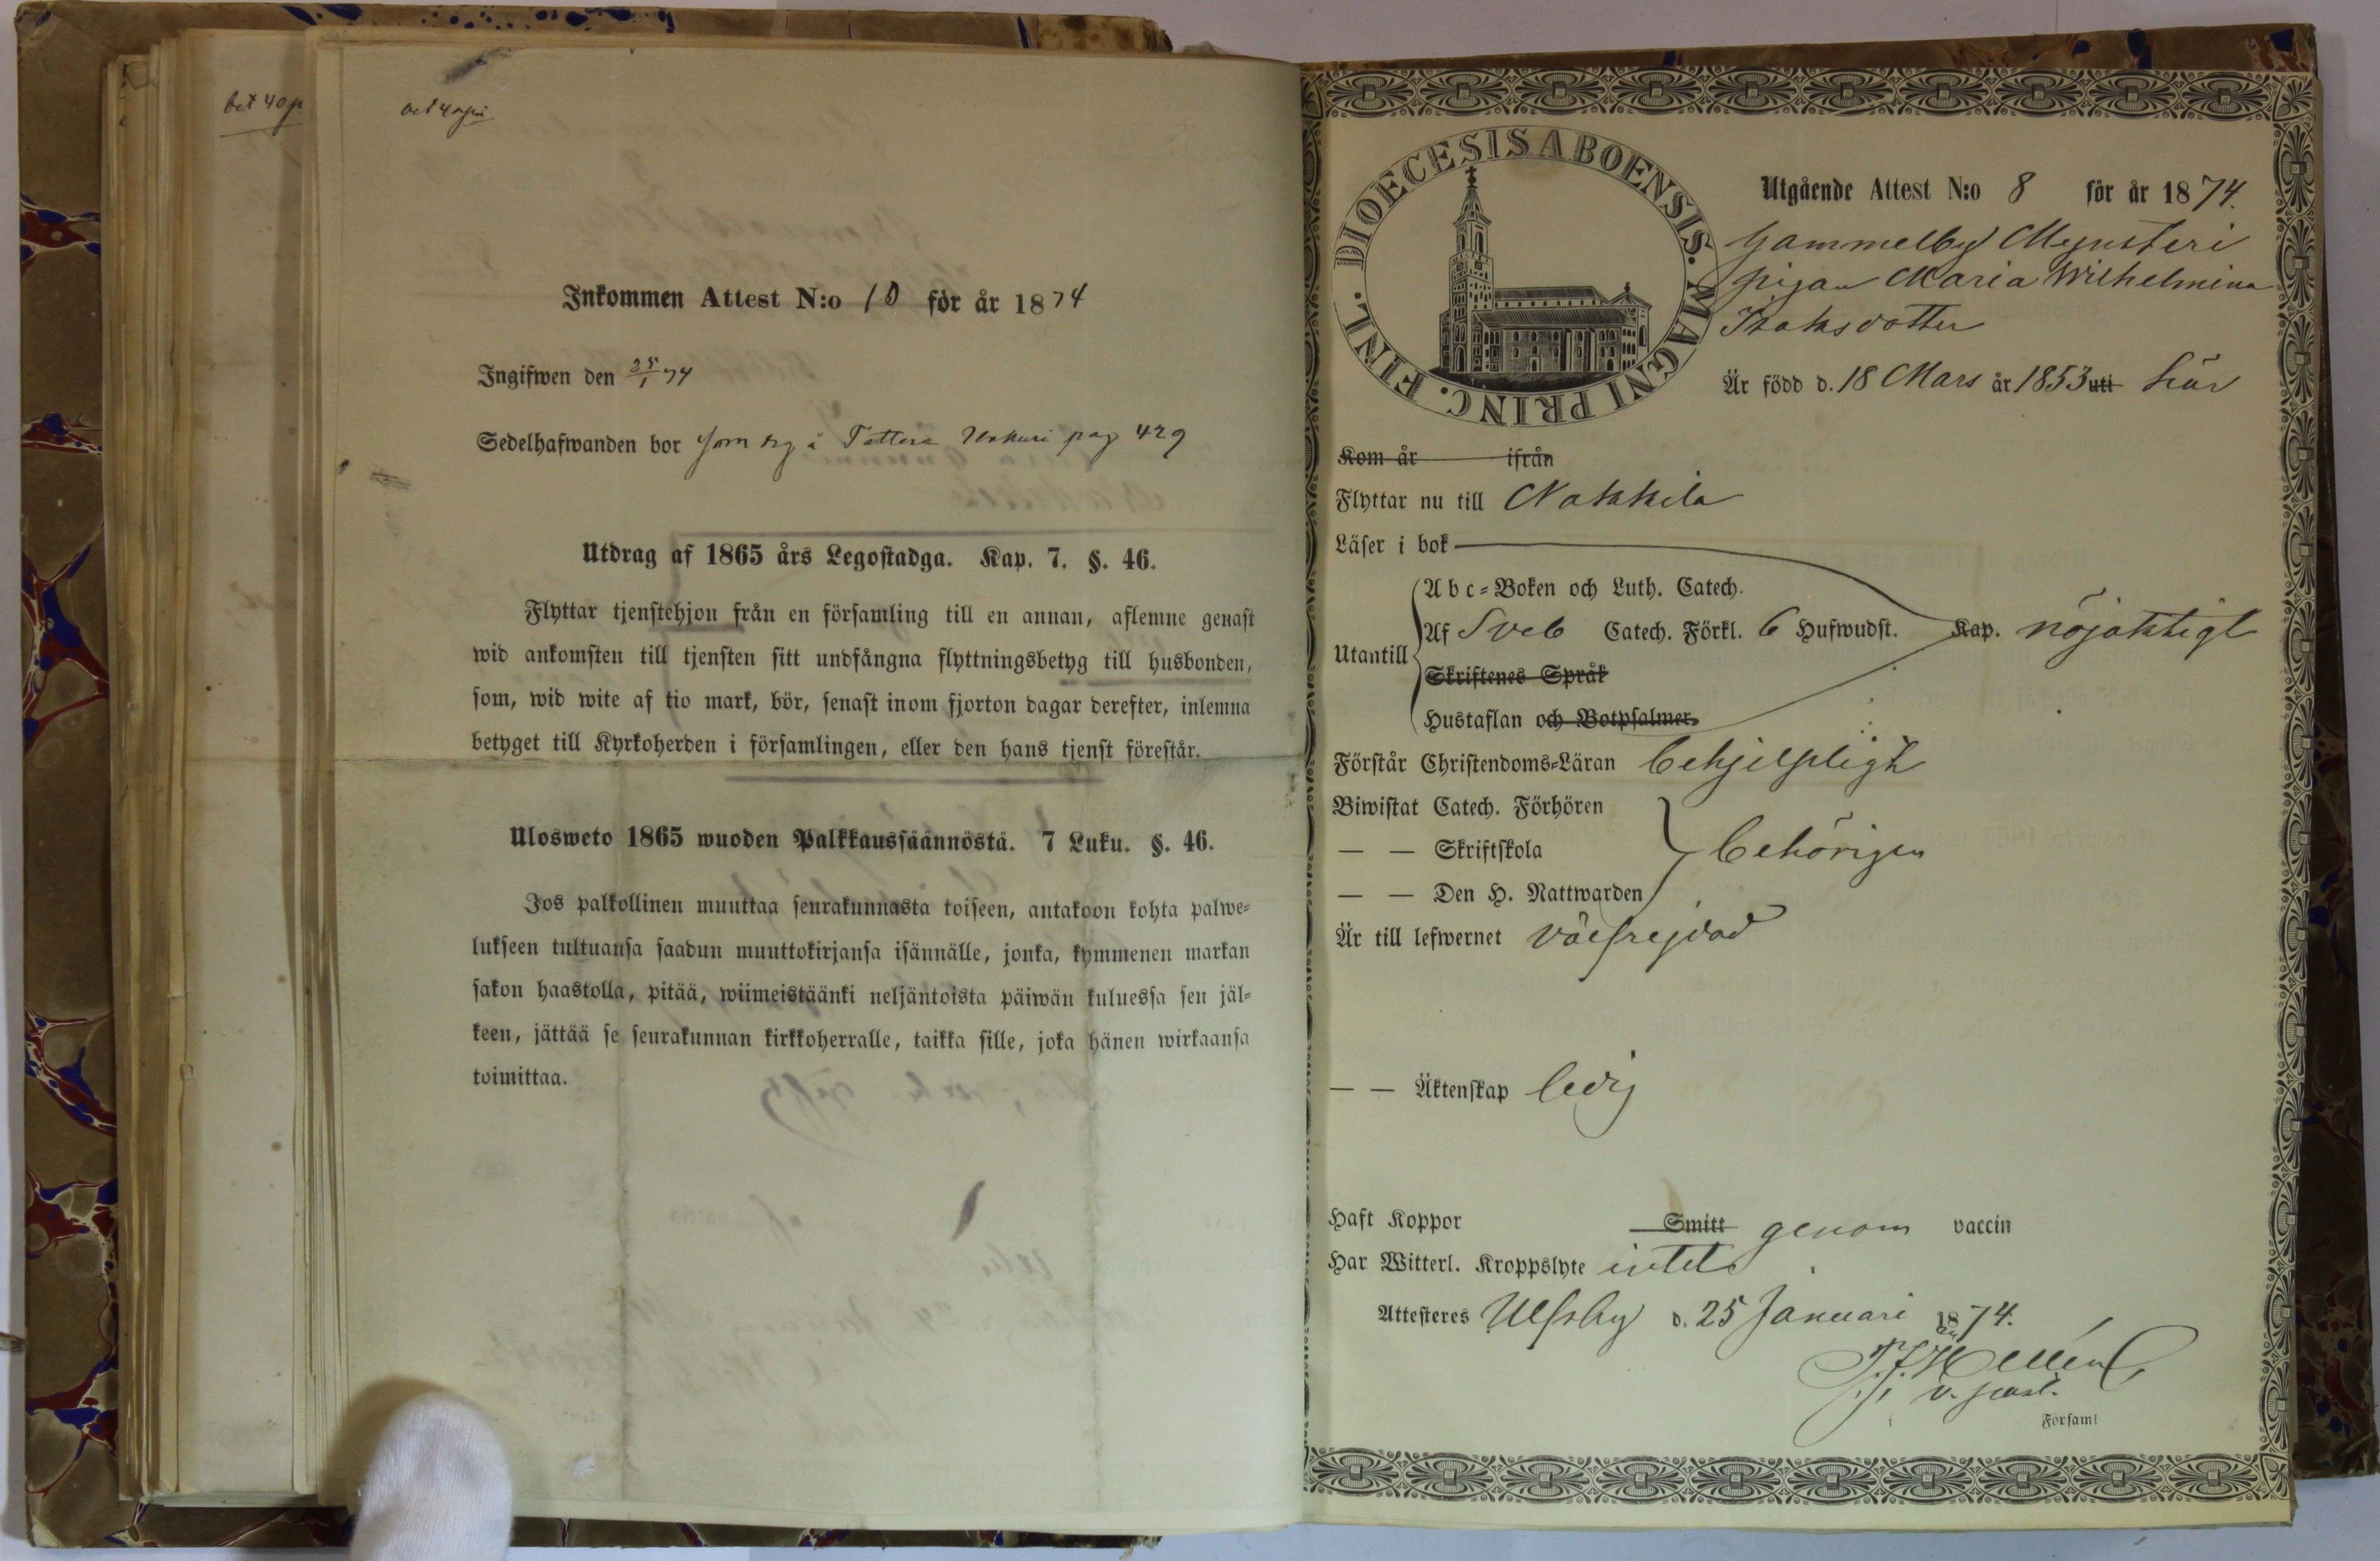 bet 40 p
bet 40 pi
Inkommen Attest N:o 10 för år 1874
Ingifwen den 25/1 74
Sedelhafwanden bor som drg å Tattara Uskuri pag 429
Utdrag af 1865 års Legostadga. Kap. 7. §. 46.
Flyttar tjenstehjon från en församling till en annan, aflemne genast
wid ankomsten till tjensten sitt undfångna flyttningsbetyg till husbonden,
som, wid wite af tio mark, bör, senast inom fjorton dagar derefter, inlemna
betyget till Kyrkoherden i församlingen, eller den hans tjenst förestår.
Ulosweto 1865 wuoden Palkkaussäännöstä. 7 Luku. §. 46.
Jos palkollinen muuttaa seurakunnasta toiseen, antakoon kohta palwe-
lukseen tultuansa saadun muuttokirjansa isännälle, jonka, kymmenen markan
sakon haastolla, pitää, wiimeistäänki neljäntoista päiwän kuluessa sen jäl-
keen, jättää se seurakunnan kirkkoherralle, taikka sille, joka hänen wirkaansa
toimittaa.
DIOECESIS ABOENSIS. MAGNI PRINC. FINL.
Utgående Attest N:o 8 för år 1874.
Gammelby Mynsteri
pigan Maria Wilhelmina
Isaksdotter
Är född d. 18 Mars år 1853 uti här
Kom år ifrån
Flyttar nu till Nakkila
Läser i bok
Abc-Boken och Luth. Catech.
Utantill Af Sveb Catech. Förkl. 6 Hufwudst. Kap. nöjaktigt
Skriftenes Språk
Hustaflan och Botpsalmer.
Förstår Christendoms-Läran behjelpligt
Biwistat Catech. Förhören
— — Skriftskola behörigen
— — Den H. Nattwarden
Är till lefwernet välfrejdad
— — Äktenskap ledig
Haft Koppor Smitt genom vaccin
Har Witterl. Kroppslyte intet
Attesteres Ulfsby d. 25 Januari 1874.
Hellén
v. past.
i Församl